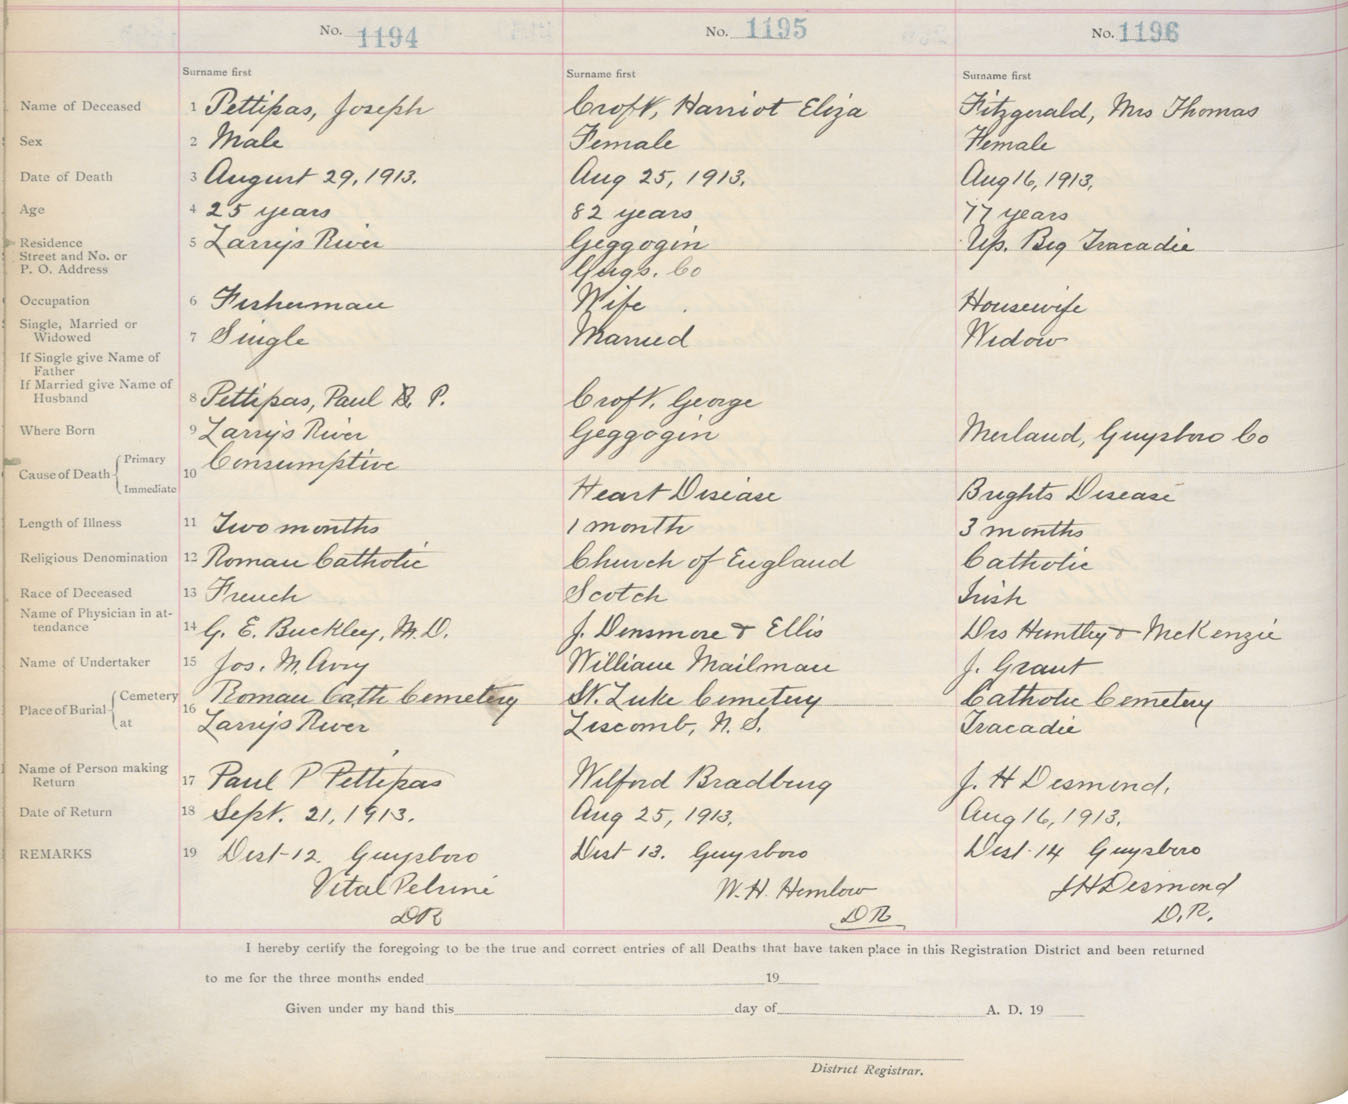 No. 1194 No. 1195 No. 1196
Surname first Surname first Surname first
Name of Deceased 1 Pettipas, Joseph Croft, Harriot Eliza Fitzgerald, Mrs Thomas
Sex 2 Male Female Female
Date of Death 3 August 29, 1913. Aug 25, 1913. Aug 16, 1913.
Age 4 25 years 82 years 77 years
Residence 5 Larry's River Geggogin Up. Big Tracadie
Street and No. or
P. O. Address Guys. Co
Occupation 6 Fisherman Wife Housewife
Single, Married or
Widowed 7 Single Married Widow
If Single give Name of
Father
If Married give Name of
Husband 8 Pettipas, Paul B. P. Croft. George
Where Born 9 Larry's River Geggogin Merland, Guysboro Co
Cause of Death Primary 10 Consumptive
Immediate Heart Disease Brights Disease
Length of Illness 11 Two months 1 month 3 months
Religious Denomination 12 Roman Catholic Church of England Catholic
Race of Deceased 13 French Scotch Irish
Name of Physician in at-
tendance 14 G. E. Buckley, M. D. J. Densmore & Ellis Drs Huntley & McKenzie
Name of Undertaker 15 Jos. M. Avry William Mailman J. Grant
Place of Burial Cemetery 16 Roman Cath Cemetery St. Luke Cemetery Catholic Cemetery
at Larry's River Liscomb, N. S. Tracadie
Name of Person making
Return 17 Paul P Pettipas Wilford Bradbury J. H Desmond.
Date of Return 18 Sept. 21, 1913. Aug 25, 1913. Aug 16, 1913.
REMARKS 19 Dist-12 Guysboro Dist 13. Guysboro Dist-14 Guysboro
Vital Pelrine W. H. Hemlow J H Desmond
DR DR D. R.
I hereby certify the foregoing to be the true and correct entries of all Deaths that have taken place in this Registration District and been returned
to me for the three months ended 19
Given under my hand this day of A. D. 19
District Registrar.